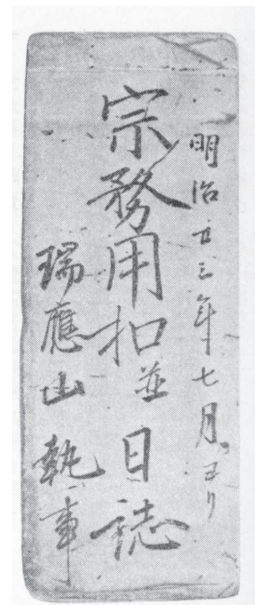 明治廿三年七月ヨリ
宗務用扣並日誌
瑞應山執事